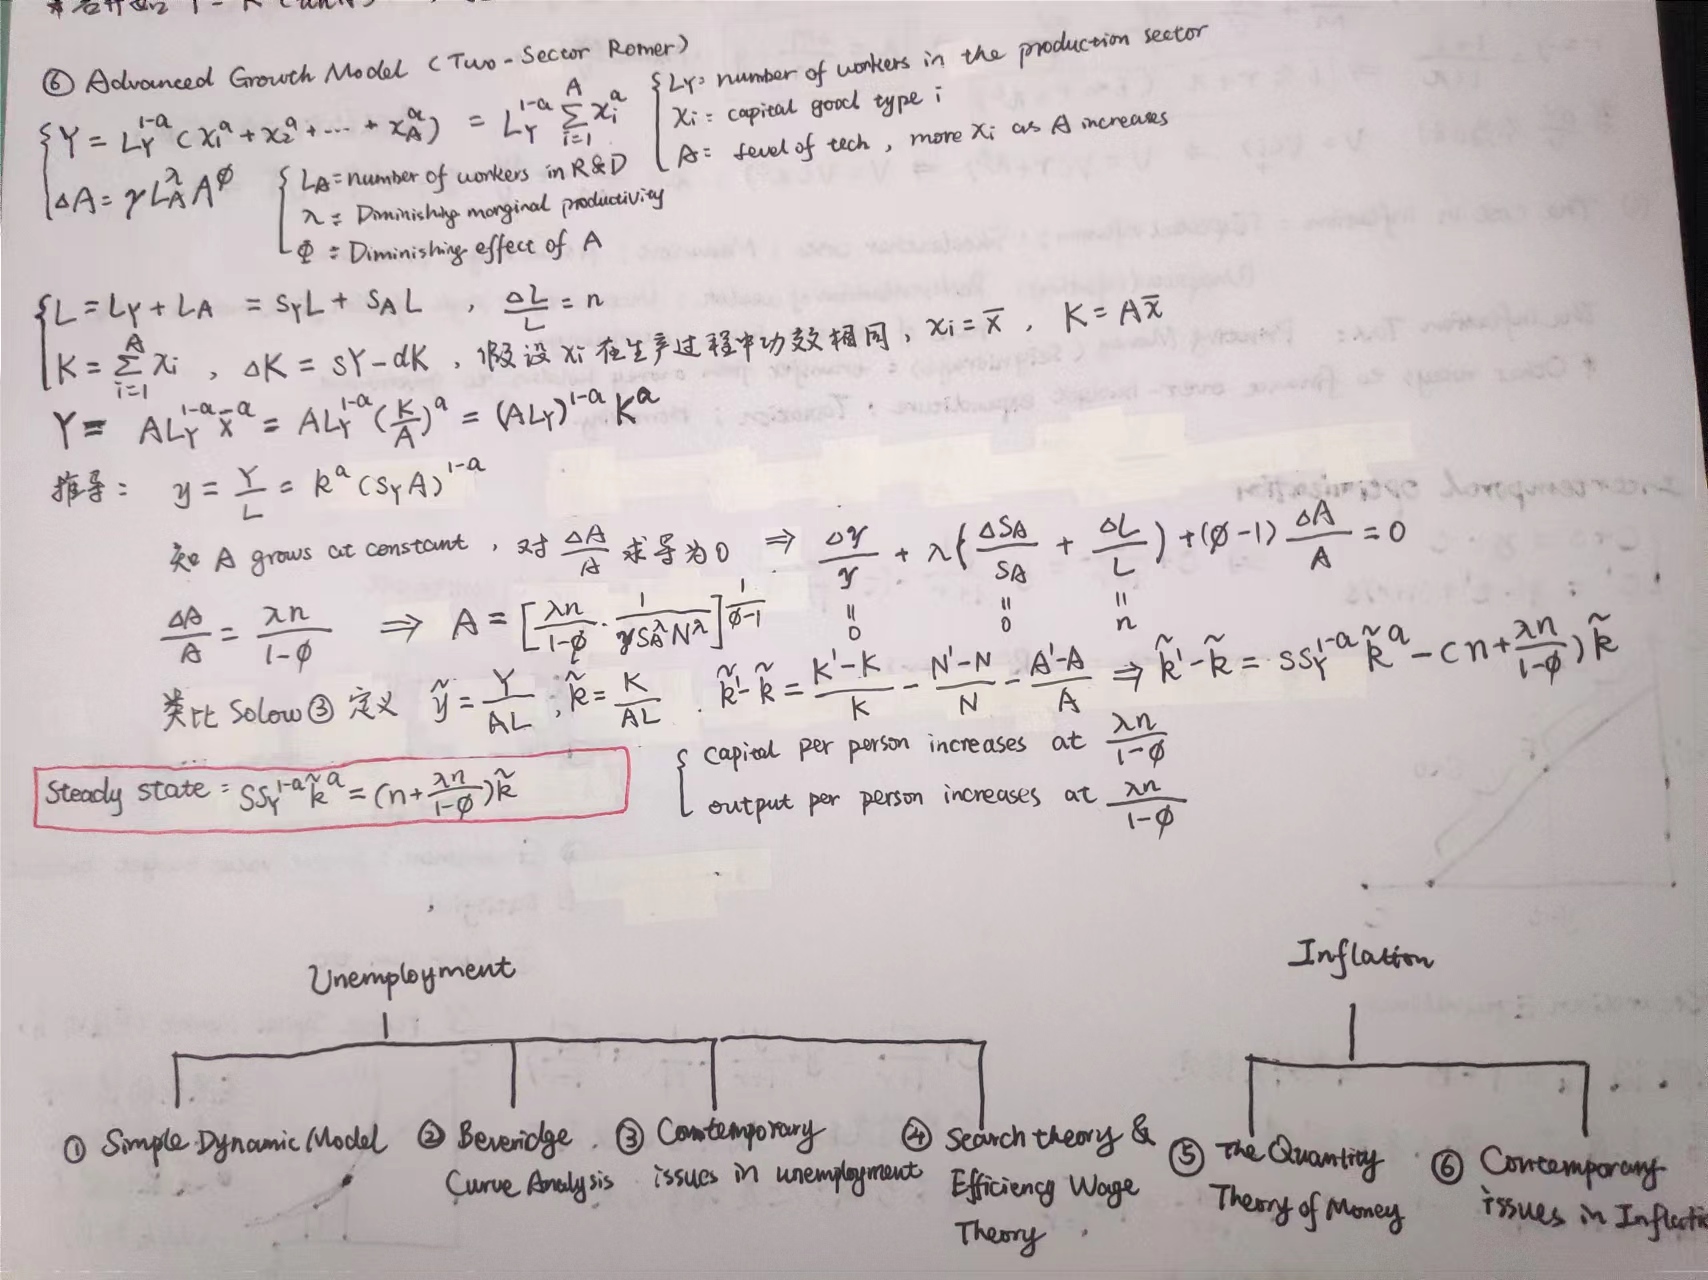 ⑥ Advanced Growth Model (Two-Sector Romer)
Y = L_Y^{1-a} (x_1^a + x_2^a + ... + x_A^a) = L_Y^{1-a} Σ_{i=1}^{A} x_i^a
L_Y: number of workers in the production sector
x_i = capital good type i
A = level of tech, more x_i as A increases
ΔA = γ L_A^λ A^ø
L_A = number of workers in R&D
λ = Diminishing marginal productivity
ø = Diminishing effect of A
L = L_Y + L_A = S_Y L + S_A L , ΔL/L = n
K = Σ_{i=1}^{A} x_i , ΔK = sY - dK , 假设 x_i 在生产过程中功效相同, x_i = x̄ , K = Ax̄
Y = A L_Y^{1-a} x̄^a = A L_Y^{1-a} (K/A)^a = (A L_Y)^{1-a} K^a
推导: y = Y/L = k^a (S_Y A)^{1-a}
知 A grows at constant, 对 ΔA/A 求导为0 ⇒ Δγ/γ + λ(ΔS_A/S_A + ΔL/L) + (ø-1) ΔA/A = 0
= 0 = 0 = n
ΔA/A = λn/(1-ø) ⇒ A = [λn/(1-ø) · 1/(γ S_A^λ N^λ)]^{1/(ø-1)}
类比 Solow③ 定义 ỹ = Y/AL ; k̃ = K/AL . k̃' - k̃ = (K'-K)/K - (N'-N)/N - (A'-A)/A ⇒ k̃' - k̃ = S S_Y^{1-a} k̃^a - (n + λn/(1-ø)) k̃
Steady state: S S_Y^{1-a} k̃^a = (n + λn/(1-ø)) k̃
capital per person increases at λn/(1-ø)
output per person increases at λn/(1-ø)
Unemployment
① Simple Dynamic Model
② Beveridge Curve Analysis
③ Contemporary issues in unemployment
④ Search theory & Efficiency Wage Theory
Inflation
⑤ The Quantity Theory of Money
⑥ Contemporary issues in Inflati